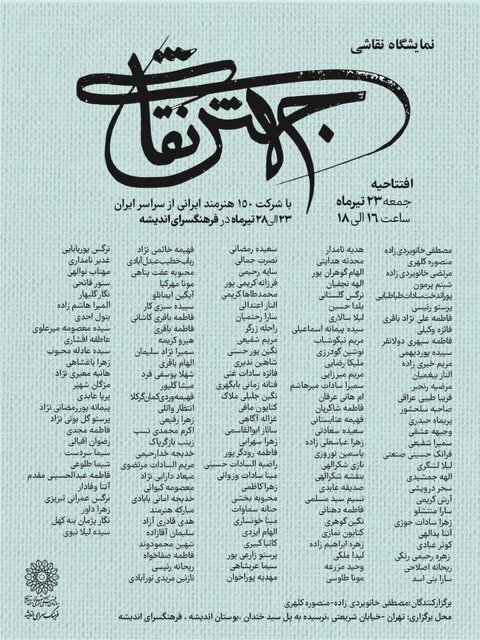 نمایشگاه نقاشی
جهش نقاشی
افتتاحیه
جمعه ۲۳ تیرماه
ساعت ۱۶ الی ۱۸
با شرکت ۱۵۰ هنرمند ایرانی از سراسر ایران
۲۳ الی ۲۸ تیرماه در فرهنگسرای اندیشه
مصطفی خانویردی زاده
منصوره کلهری
مرتضی خانویردی زاده
شبنم پرمون
پوراندخت سادات طباطبایی
پرستو رئیسی
فاطمه علی نژاد باقری
فائزه وکیلی
فاطمه سپهری دولانقر
سیده پوربدیهی
مریم خیری زاده
الناز بیغمیان
مرضیه رنجبر
فریبا طیبی عراقی
صاحبه سلحشور
پریماه حیدری
وجیهه عشقی
سمیرا شفیعی
فرانک حسینی صنعتی
لیلا لشگری
الهه جمشیدی
سحر درویشی
آرش کریمی
سارا منتشلو
زهرا سادات جوزی
آتنا یدالهی
کوثر عبادی
زهره رحیمی رنکی
ریحانه اصلاحی
سارا بنی اسد
هدیه نامدار
محدثه هدایتی
الهام گوهریان پور
الهه نجفیان
نرگس گلستانی
یلدا حسین
لیلا سالاری
سیده پیمانه اسماعیلی
مریم نیکوشباب
نوشین گودرزی
ملیکا رضایی
مریم میرزایی
سمیرا سادات میرهاشم
ام هانی عرفان
فاطمه شاکریان
فهیمه عنابستانی
سیده سعادتی
زهرا عباسعلی زاده
یاسمین نوروزی
نازی شکرالهی
بنفشه شکرالهی
صدیقه عابدی
نسیم سید مسلمی
فاطمه دهقانی
نگین گوهری
کتایون نمازی
زهره ابراهیم زاده
لیدا ملکی
وحید مزرعه
مونا طاوسی
سعیده رمضانی
نصرت جمالی
سایه رحیمی
فرزانه کریمی پور
محمدطاها کریمی
الناز اعتدالی
سارا رحتمیان
راحله زرگر
مریم شفیعی
نگین پور حسنی
شاهین ندیری
فائزه سادات غنی
فتانه زمانی بابگهری
نگین جلیلی ملاک
کتایون مافی
غزاله آگاهی
ساناز ابوالقاسمی
زهرا سهرابی
فاطمه رودگر پور
راضیه السادات حسینی
مینا سادات وزوانی
زهرا کاظمی
محبوبه بخشی
حنانه سماوات
مینا خونساری
الهام ایزدی
کاتیا کبیری
پرستو زارعی پور
سیما عربشاهی
مهدیه پوراخوان
فهیمه خاتمی نژاد
رباب خطیب عبدل آبادی
محبوبه عفت پناهی
مونا مهرکیا
آبگین ایمانلو
سیده سبزی کار
فاطمه باقری کاشانی
فاطمه باقری
هیرو کریمه
سمیرا نژاد سلیمان
الهام باقری
شهلا یوسفی فرد
میشا گلپور
فهیمه وردی کمان گرکلا
انتظار واثلی
زهرا رفیعی
اکرم محمدی نسب
زینب بازگریاک
خدیجه خدارحیمی
مریم السادات مرتضوی
میعاد دارابی نژاد
معصومه کیوانی
خدیجه امانی بابادی
مبارکه هنرمند
هدی قادری آزاد
سلیمان آقازاده
شهین محمودوند
فاطمه صفاخواه
ریحانه رئیسی
نازنین مریدی نورآبادی
نرگس پوربابایی
غدیر نامداری
مهتاب نوالهی
سنور فاتحی
نگار گلبهار
المیرا هاشم زاده
بتول احدی
سیده معصومه میرعلوی
عاطفه افشاری
سیده عادله محبوب
زهرا باغشاهی
هانیه معیری نژاد
مژگان شهپر
پریا عابدی
پیمانه پوررمضانی نژاد
پرستو گل بوتی نژاد
فاطمه مجدی
رضوان اقبالی
سیما سردست
شیما طلوعی
فاطمه عبدالحسینی مقدم
آتنا وفادار
نرگس عمرانی تبریزی
زهرا داور
نگار پژمان بنه کهل
سیده لیلا نبوی
برگزارکنندگان:مصطفی خانویردی زاده-منصوره کلهری
محل برگزاری: تهران -خیابان شریعتی ،نرسیده به پل سید خندان ،بوستان اندیشه ، فرهنگسرای اندیشه